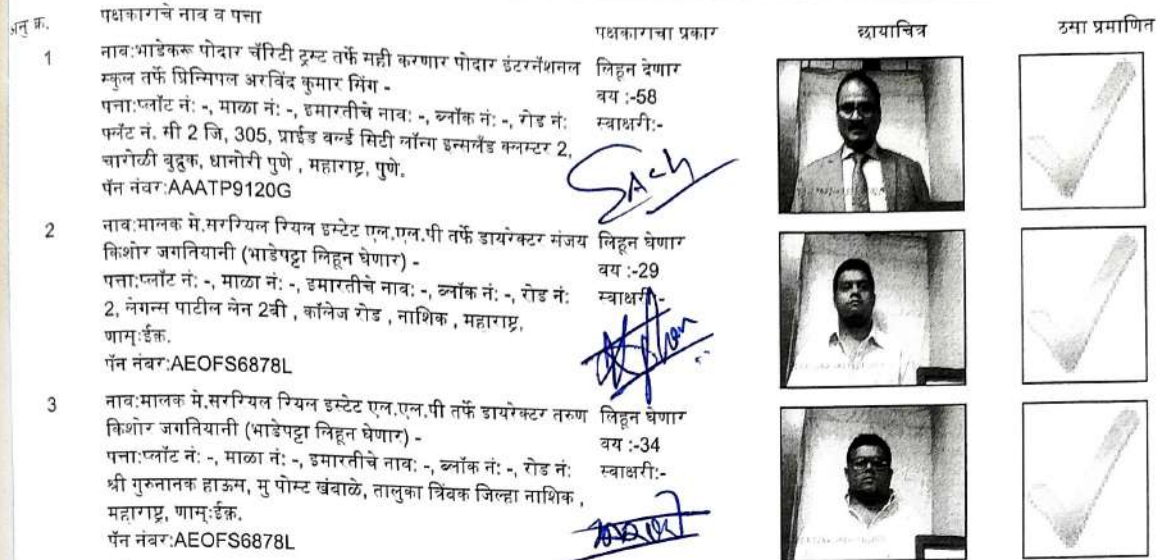 अनु क्र. पक्षकाराचे नाव व पत्ता पक्षकाराचा प्रकार छायाचित्र ठसा प्रमाणित
1 नाव:भाडेकरू पोदार चॅरिटी ट्रस्ट तर्फे सही करणार पोदार इंटरनॅशनल लिहून देणार
स्कुल तर्फे प्रिन्सिपल अरविंद कुमार सिंग - वय :-58
पत्ता:प्लॉट नं: -, माळा नं: -, इमारतीचे नाव: -, ब्लॉक नं: -, रोड नं: स्वाक्षरी:-
फ्लॅट नं. सी 2 जि, 305, प्राईड वर्ल्ड सिटी लॉन्ग इन्सलँड क्लस्टर 2,
चारोळी बुद्रुक, धानोरी पुणे , महाराष्ट्र, पुणे.
पॅन नंबर:AAATP9120G
2 नाव:मालक मे.सररियल रियल इस्टेट एल.एल.पी तर्फे डायरेक्टर संजय लिहून घेणार
किशोर जगतियानी (भाडेपट्टा लिहून घेणार) - वय :-29
पत्ता:प्लॉट नं: -, माळा नं: -, इमारतीचे नाव: -, ब्लॉक नं: -, रोड नं: स्वाक्षरी:-
2, लेगन्स पाटील लेन 2बी , कॉलेज रोड , नाशिक , महाराष्ट्र,
णाम्:ईक़.
पॅन नंबर:AEOFS6878L
3 नाव:मालक मे.सररियल रियल इस्टेट एल.एल.पी तर्फे डायरेक्टर तरुण लिहून घेणार
किशोर जगतियानी (भाडेपट्टा लिहून घेणार) - वय :-34
पत्ता:प्लॉट नं: -, माळा नं: -, इमारतीचे नाव: -, ब्लॉक नं: -, रोड नं: स्वाक्षरी:-
श्री गुरुनानक हाऊस, मु पोस्ट खंबाळे, तालुका त्रिंबक जिल्हा नाशिक ,
महाराष्ट्र, णाम्:ईक़.
पॅन नंबर:AEOFS6878L